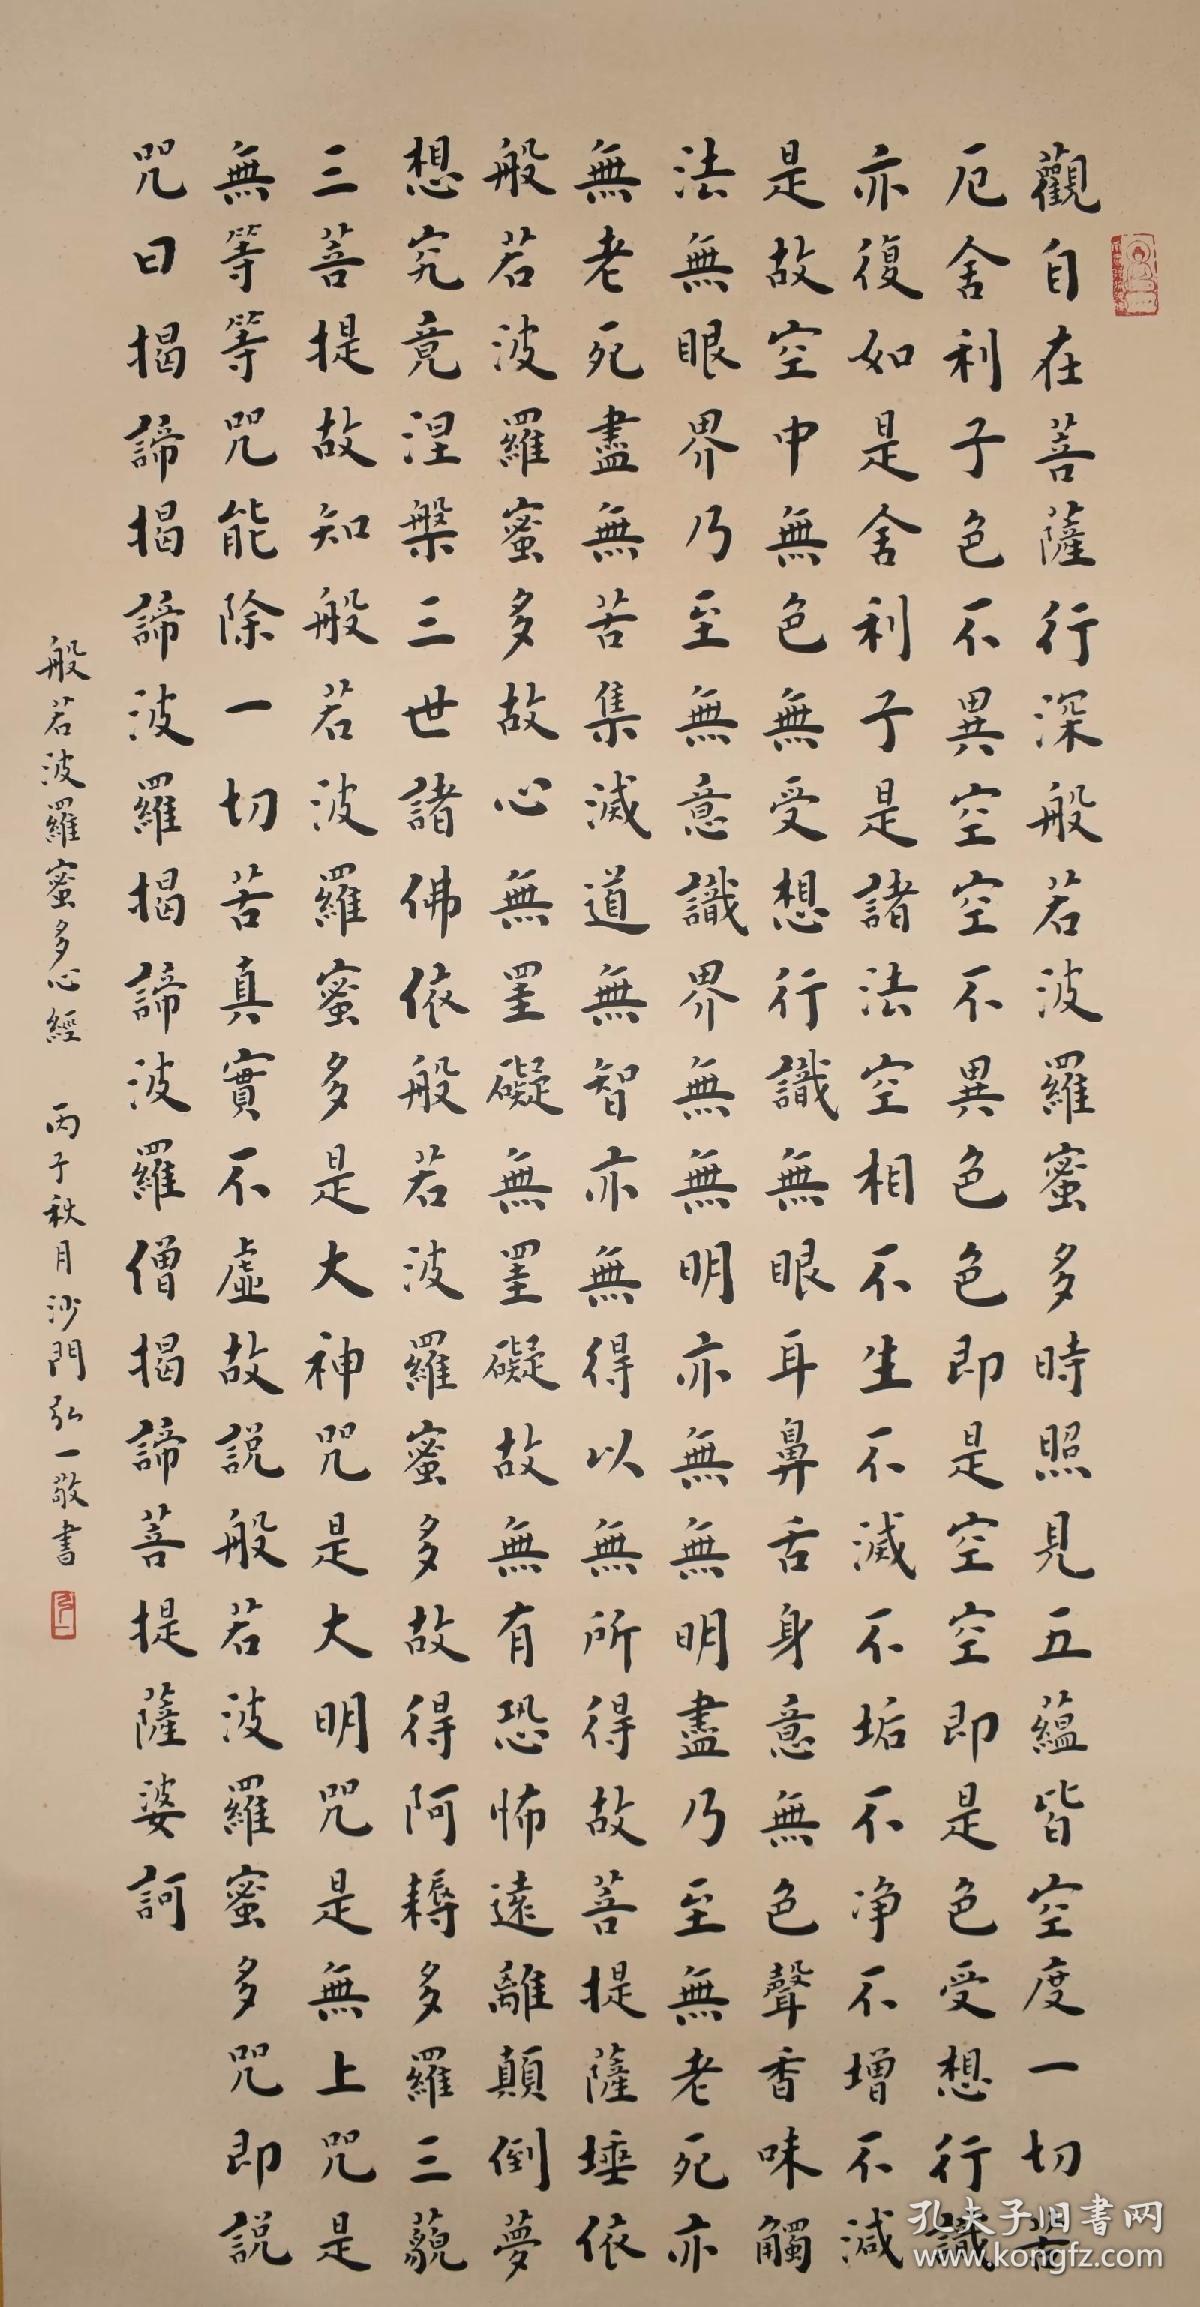 觀自在菩薩行深般若波羅蜜多時照見五蘊皆空度一切苦
厄舍利子色不異空空不異色色即是空空即是色受想行識
亦復如是舍利子是諸法空相不生不滅不垢不净不增不減
是故空中無色無受想行識無眼耳鼻舌身意無色聲香味觸
法無眼界乃至無意識界無無明亦無無明盡乃至無老死亦
無老死盡無苦集滅道無智亦無得以無所得故菩提薩埵依
般若波羅蜜多故心無罣礙無罣礙故無有恐怖遠離顛倒夢
想究竟涅槃三世諸佛依般若波羅蜜多故得阿耨多羅三藐
三菩提故知般若波羅蜜多是大神咒是大明咒是無上咒是
無等等咒能除一切苦真實不虛故説般若波羅蜜多咒即説
咒曰揭諦揭諦波羅揭諦波羅僧揭諦菩提薩婆訶
般若波羅蜜多心經 丙子秋月沙門弘一敬書
孔夫子旧书网
www.kongfz.com